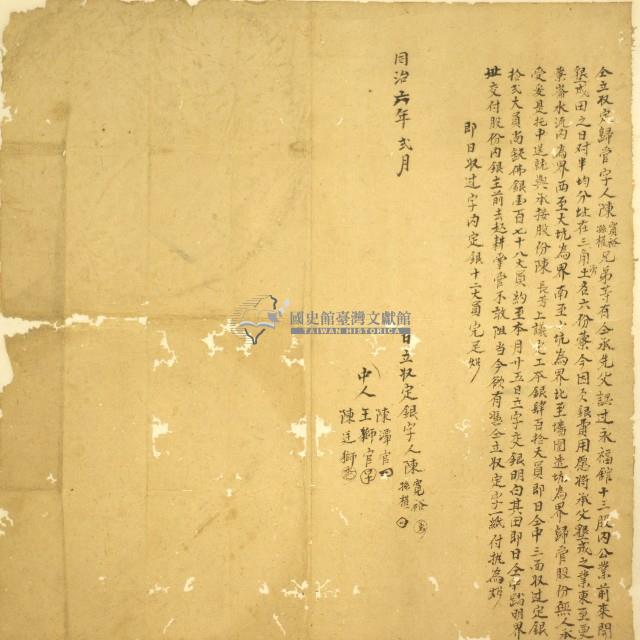 仝立収定歸管字人陳寬裕孫植兄弟等有仝承先父誤过永福館十三股內公業前來開
墾成田之日对半均分址在三角土名六份藔今因欠銀費用愿將承父墾成之業東至更
藔崙水流內為界西至大坑為界南至小坑為界北至墻圍透坑為界歸管股份無人承
受爰是托中送就與承接股份陳長芳上議定工本銀肆百拾大員即日仝中三面収过定銀
拾弍大員尚缺佛銀壹百七十八大員約至本月廿五日立字交銀明白其田即日仝中踏明界
址交付股份內銀主前去起耕掌管不敢阻当今欲有憑仝立収定字一紙付执為炤
即日収过字內定銀十二大員完足炤
同治六年弍月
日立収定銀字人陳寬裕孫植
中人
陳滯官
王獅官
陳廷獅
國史館臺灣文獻館
TAIWAN HISTORICA